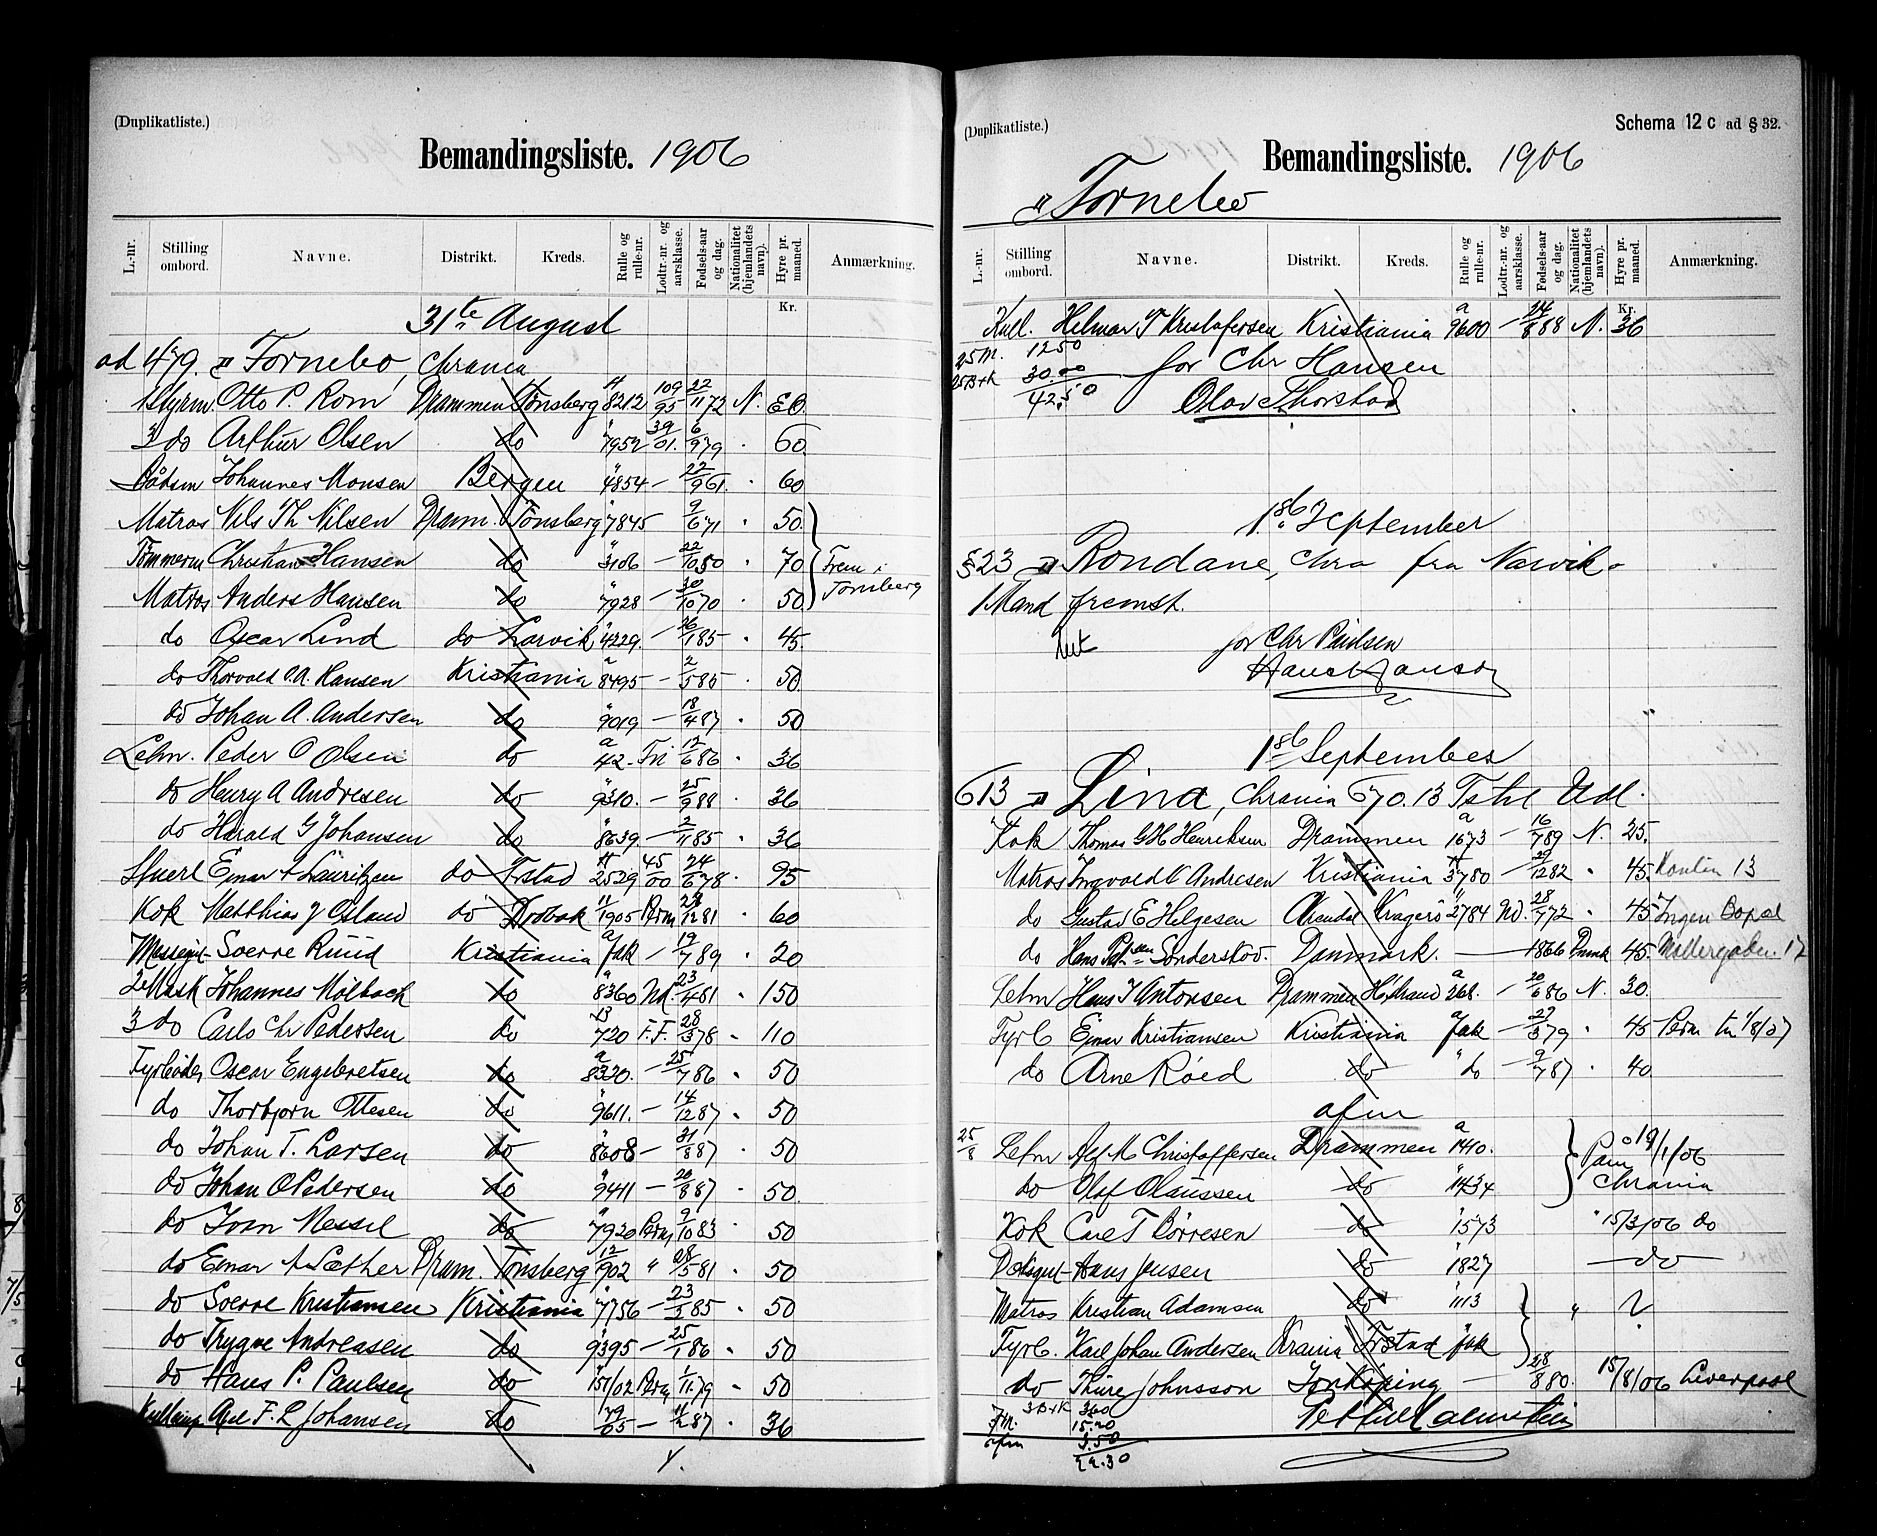 (Duplikatliste.)
Bemandingsliste. 1906
L.-nr. Stilling ombord. Navne. Distrikt. Kreds. Rulle og rulle-nr. Lodtr.-nr. og aarsklasse. Fødsels-aar og dag. Nationalitet (hjemlandets navn). Hyre pr. maaned. Anmærkning.
Kr.
31te August
ad 479. " Fornebo, Chrania
1 Styrm. Otto P. Rom Drammen Tönsberg 8212 109/95 22/11 72 N. 80.
3 do Arthur Olsen do " 7952 39/01. 6/9 79 60.
Bådsm Johannes Monsen Bergen " 4854 — 22/9 61. 60
Matros Nils Th Nilsen Dramm. Tönsberg " 7845 9/6 71 50.
Tömmerm Christian Hansen do " 3106 — 22/10 50 70 Frem i
Matros Anders Hansen do " 7928 — 30/10 70 50. Tönsberg
do Oscar Lind do Larvik " 4229. — 26/1 85 45.
do Thorvald O.A. Hansen Kristiania a 8495 — 2/5 85 50.
do Johan A. Andersen do " 9019 — 18/4 87 50
Letm. Peder O Olsen do a 42. Fri 12/6 86 36
do Henry A Andresen do " 9310. — 25/9 88 36
do Harald G Johansen do " 8639. — 2/11 85 36
Stuert Einar A Lauritzen do Fstad 2529 45/00 24/6 78. 95
Kok Matthias J Osland do Dröbak 11/1905 Perm 28/12 81 60
Messegut Sverre Ruud Kristiania a fak — 19/7 89 20
2 Mask Johannes Mölbach do a 8360 Ud. 23/4 81 150
3 do Carlo Chr Pedersen do 13/720 F.F. 28/3 78 110
Fyrböder Oscar Engebretsen do a 8320. — 25/7 86 50
do Thorbjørn Ottesen do " 9611. — 14/12 87 50
do Johan T. Larsen do " 8608 — 31/8 87 50
do Johan O Pedersen do " 9411 — 20/8 87 50.
do Ivar Messel do " 7920 Perm 9/10 83 50
do Einar A Sæther Dram. Tönsberg 12/902 " 28/5 81 50
do Sverre Kristiansen Kristiania " 7756 — 23/5 85 50
do Trygve Andreasen do " 9395 — 25/1 86 50
do Hans P. Paulsen do 151/02 Perm 1/11 79 50
Kullemp Axel F. L Johansen do 79/65 — 11/2 87 36
(Duplikatliste.) Schema 12 c ad § 32.
Bemandingsliste. 1906
" Fornebo
L.-nr. Stilling ombord. Navne. Distrikt. Kreds. Rulle og rulle-nr. Lodtr.-nr. og aarsklasse. Fødsels-aar og dag. Nationalitet (hjemlandets navn). Hyre pr. maaned. Anmærkning.
Kr.
Kull. Helmar T Kristofersen Kristiania a 9600 — 14/8 88 N. 36
25 M. 1250 for Chr Hansen
25 B+K 30.00
42.50 Olav Thorstad
1ste September
§ 23 " Rondane, Chra fra Narvik.
1 Mand fremst.
Int for Chr Paulsen
Hans Hanson
1ste September
613 " Lina, Chrania 670.13 T Udl.
Kok Thomas G H Henriksen Drammen a 1673 — 16/7 89 N. 25.
Matros Ingvald O Andresen Kristiania 3780 — 29/12 82 45.
do Gustav E Helgesen Arendal Kragerö " 2784 Ud. 28/7 72 45 Ingen Bopæl
do Hans Sönderskov. Danmark. — 1866 45. Möllergaden. 17
Letm Hans J Antonsen Drammen a 268. — 20/6 86 N. 30.
Fyrb Einar Kristiansen Kristiania a fak — 27/3 79 45 Perm 1/8/07
do Arne Röed do " do — 9/7 87 40
afm
25/8 Letm Alf M Christoffersen Drammen a 1410. Påm 19/1/06
do Olaf Olaussen do " 1434 Chrania
Kok Carl T Börresen do " 1573 " 15/3/06 do
Dæksgut Hans Jensen do " 1827 — do —
Matros Kristian Adamsen do " 1113 " ?
Fyrb. Karl Johan Andersen Krania Frstad " fak
do Thure Johnsson Jonköping — 28/8 80. 15/8/06 Liverpool
3 B+K 360
7 M. 15.20
afm 3.50
22.30